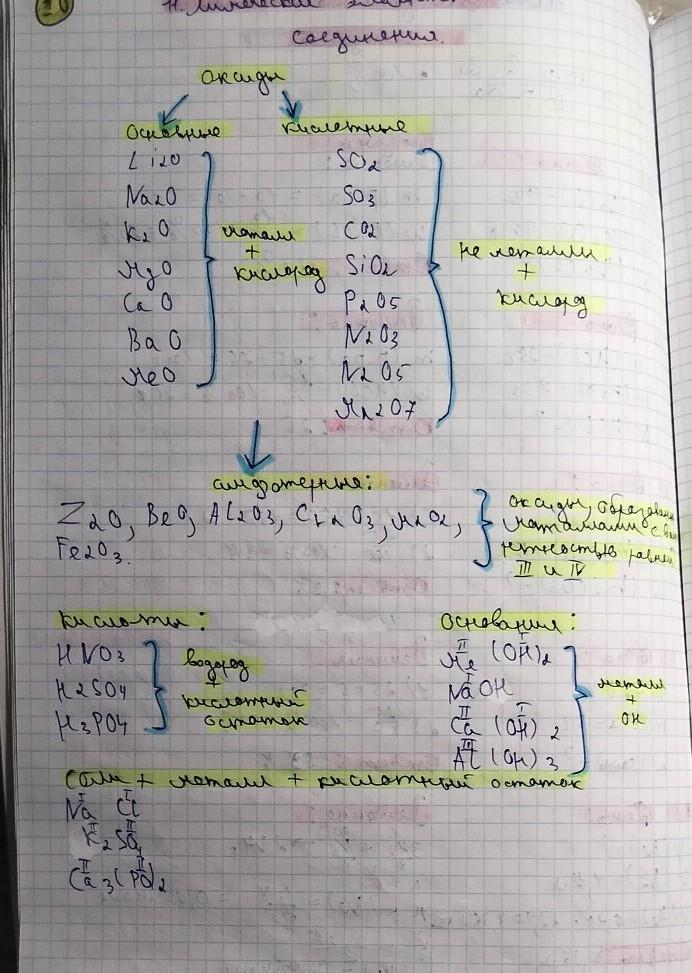 соединения.
оксиды
Основные
кислотные
Li2O
Na2O
K2O
MgO
CaO
BaO
MeO
металл
+
кислород
SO2
SO3
CO2
SiO2
P2O5
N2O3
N2O5
Mn2O7
не металлы
+
кислород
амфотерные:
ZnO, BeO, Al2O3, Cr2O3, MnO2,
Fe2O3.
оксиды, образован
металлами с вал
нтностью равной
III и IV
кислоты:
HNO3
H2SO4
H3PO4
водород
+
кислотный
остаток
Основания:
II I
Me (OH)2
I
NaOH
II I
Ca (OH)2
III
Al (OH)3
металл
+
OH
Соли + металл + кислотный остаток
I I
Na Cl
II II
K2SO4
II II
Ca3(PO)2